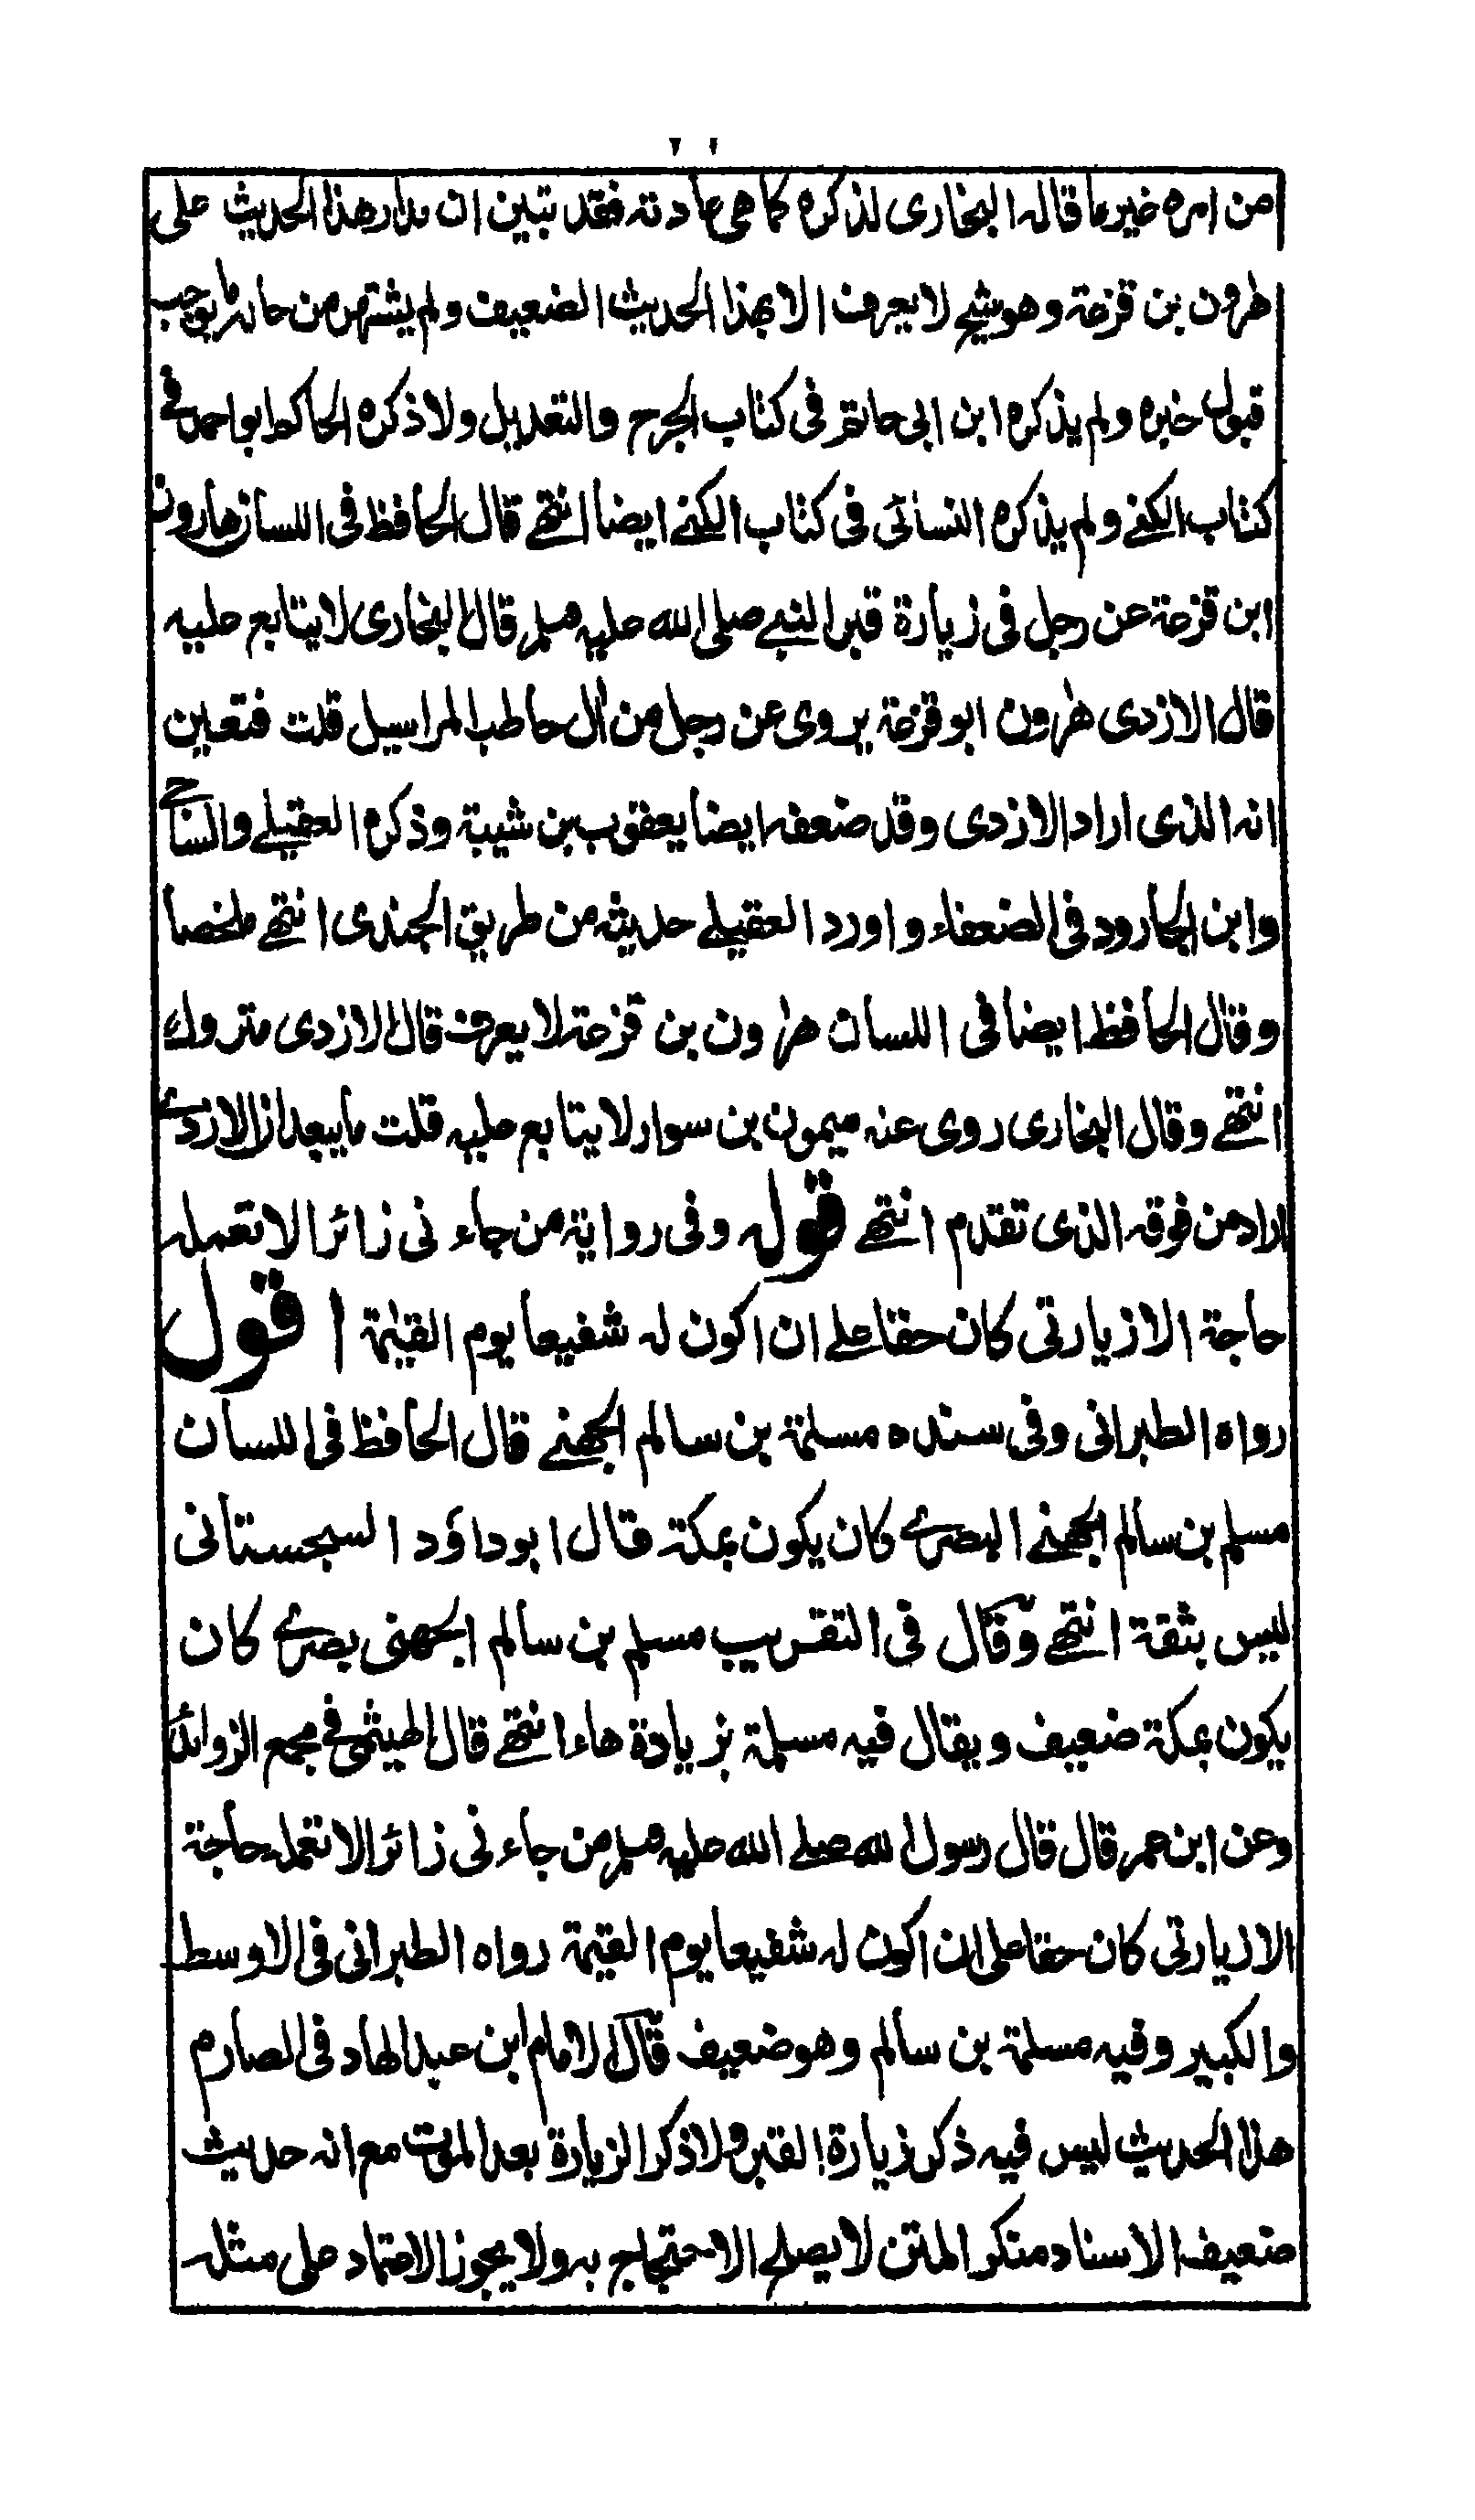 من امره غير ما قاله البخارى لذكره كما هى عادته فقد تبين ان مدار هذا الحديث على
هٰرون بن قزعة وهو شيخ لا يعرف الا بهذا الحديث الضعيف ولم يشتهر من حاله ما يوجب
قبول خبره ولم يذكره ابن ابى حاتم فى كتاب الجرح والتعديل ولا ذكره الحاكم ابو احمد فى
كتاب الكنے ولم يذكره النسائى فى كتاب الكنے ايضا انتهے قال الحافظ فى اللسان هارون
ابن قزعة عن رجل فى زيارة قبر النبے صلى الله عليه وسلم قال البخارى لا يتابع عليه
قال الازدى هٰرون ابو قزعة يروى عن رجل من اٰل حاطب المراسيل قلت فتعين
انه الذى اراد الازدى وقد ضعفه ايضا يعقوب بن شيبة وذكره العقيلے والساجے
وابن الجارود فى الضعفاء واورد العقيلے حديثه من طريق الجندى انتهے ملخصا
وقال الحافظ ايضا فى اللسان هٰرون بن قزعة لا يعرف قال الازدى متروك
انتهے وقال البخارى روى عنه ميمون بن سوار لا يتابع عليه قلت ما يبعد ان الازدے
اراد من فوقه الذى تقدم انتهے قوله وفى رواية من جاءنى زائرا لا تعمله
حاجة الا زيارتى كان حقا علے ان اكون له شفيعا يوم القيٰمة اقول
رواه الطبرانى وفى سنده مسلمة بن سالم الجهنے قال الحافظ فى اللسان
مسلم بن سالم الجهنے البصرے كان يكون بمكة قال ابو داؤد السجستانى
ليس بثقة انتهے وقال فى التقريب مسلم بن سالم الجهنى بصرے كان
يكون بمكة ضعيف ويقال فيه مسلمة بزيادة هاء انتهے قال الهيثمى فى مجمع الزوائد
وعن ابن عمر قال قال رسول الله صلے الله عليه وسلم من جاءنى زائرا لا تعمله حاجة
الا زيارتى كان حقا على ان اكون له شفيعا يوم القيٰمة رواه الطبرانى فى الاوسط
والكبير وفيه مسلمة بن سالم وهو ضعيف قال الامام ابن عبد الهاد فى الصارم
هذا الحديث ليس فيه ذكر زيارة القبر ولا ذكر الزيارة بعد الموت مع انه حديث
ضعيف الاسناد منكر المتن لا يصلے الاحتجاج به ولا يجوز الاعتماد على مثله